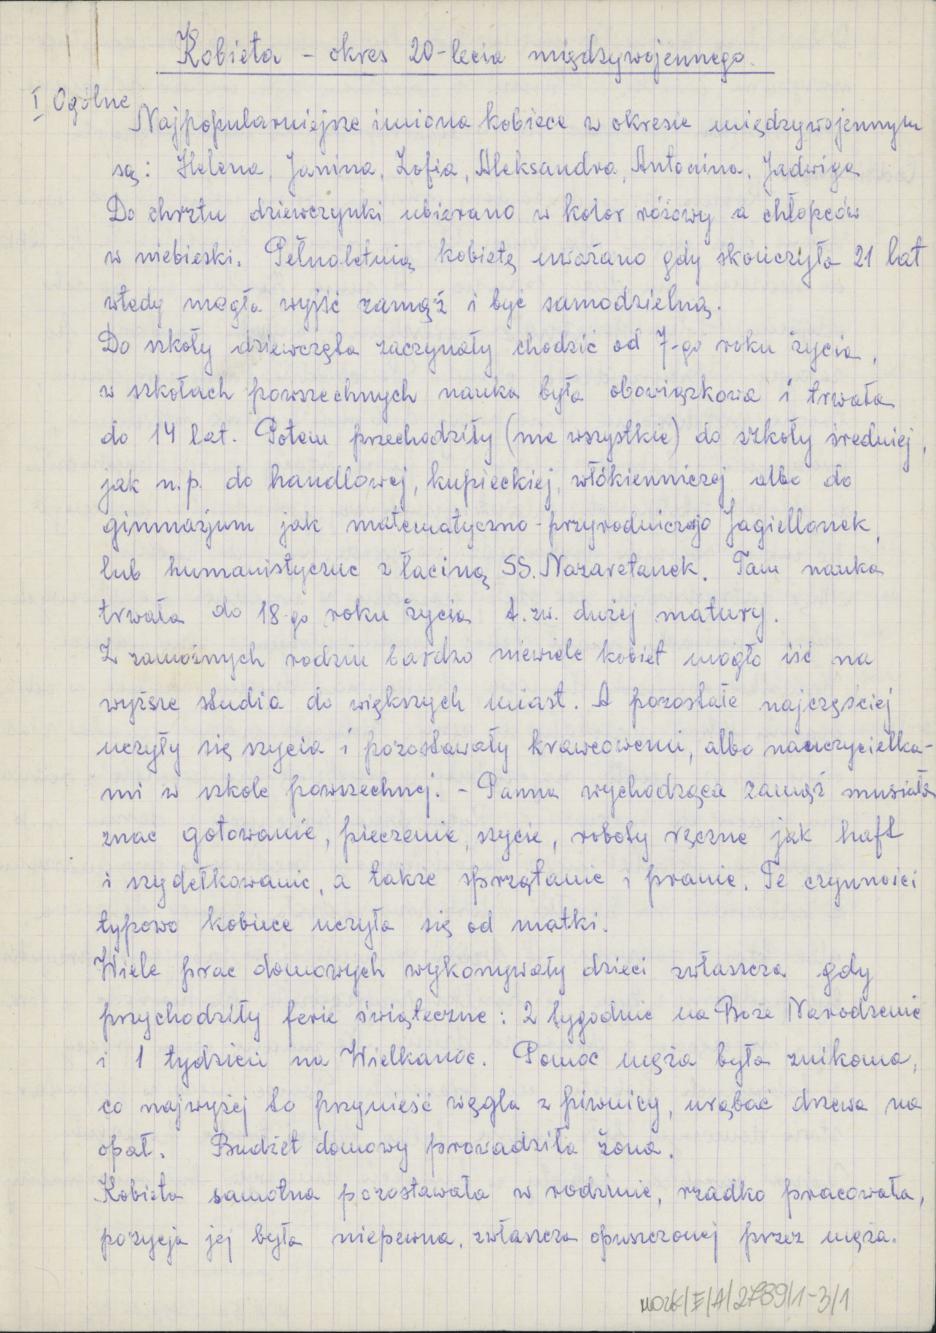 Kobieta – okres 20-lecia międzywojennego.
I Ogólne
Najpopularniejsze imiona kobiece w okresie międzywojennym
są: Helena, Janina, Zofia, Aleksandra, Antonina, Jadwiga
Do chrztu dziewczynki ubierano w kolor różowy a chłopców
w niebieski. Pełnoletnią kobietę uważano gdy skończyła 21 lat
wtedy mogła wyjść zamąż i być samodzielną.
Do szkoły dziewczęta zaczynały chodzić od 7-go roku życia,
w szkołach powszechnych nauka była obowiązkowa i trwała
do 14 lat. Potem przechodziły (nie wszystkie) do szkoły średniej,
jak n.p. do handlowej, kupieckiej, włókienniczej albo do
gimnazjum jak matematyczno-przyrodniczego Jagiellonek,
lub humanistyczne z łaciną SS. Nazaretanek. Tam nauka
trwała do 18-go roku życia t.zw. dużej matury.
Z zamożnych rodzin bardzo niewiele kobiet mogło iść na
wyższe studia do większych miast. A pozostałe najczęściej
uczyły się szycia i pozostawały krawcowemi, albo nauczycielka-
mi w szkole powszechnej. – Panna wychodząca zamąż musiała
znać gotowanie, pieczenie, szycie, roboty ręczne jak haft
i szydełkowanie, a także sprzątanie i pranie. Te czynności
typowo kobiece uczyła się od matki.
Wiele prac domowych wykonywały dzieci zwłaszcza gdy
przychodziły ferie świąteczne: 2 tygodnie na Boże Narodzenie
i 1 tydzień na Wielkanoc. Pomoc męża była znikoma,
co najwyżej to przynieść węgla z piwnicy, urąbać drzewa na
opał. Budżet domowy prowadziła żona.
Kobieta samotna pozostawała w rodzinie, rzadko pracowała,
pozycja jej była niepewna, zwłaszcza opuszczonej przez męża.
MOZK/E/A/2789/1-3/1